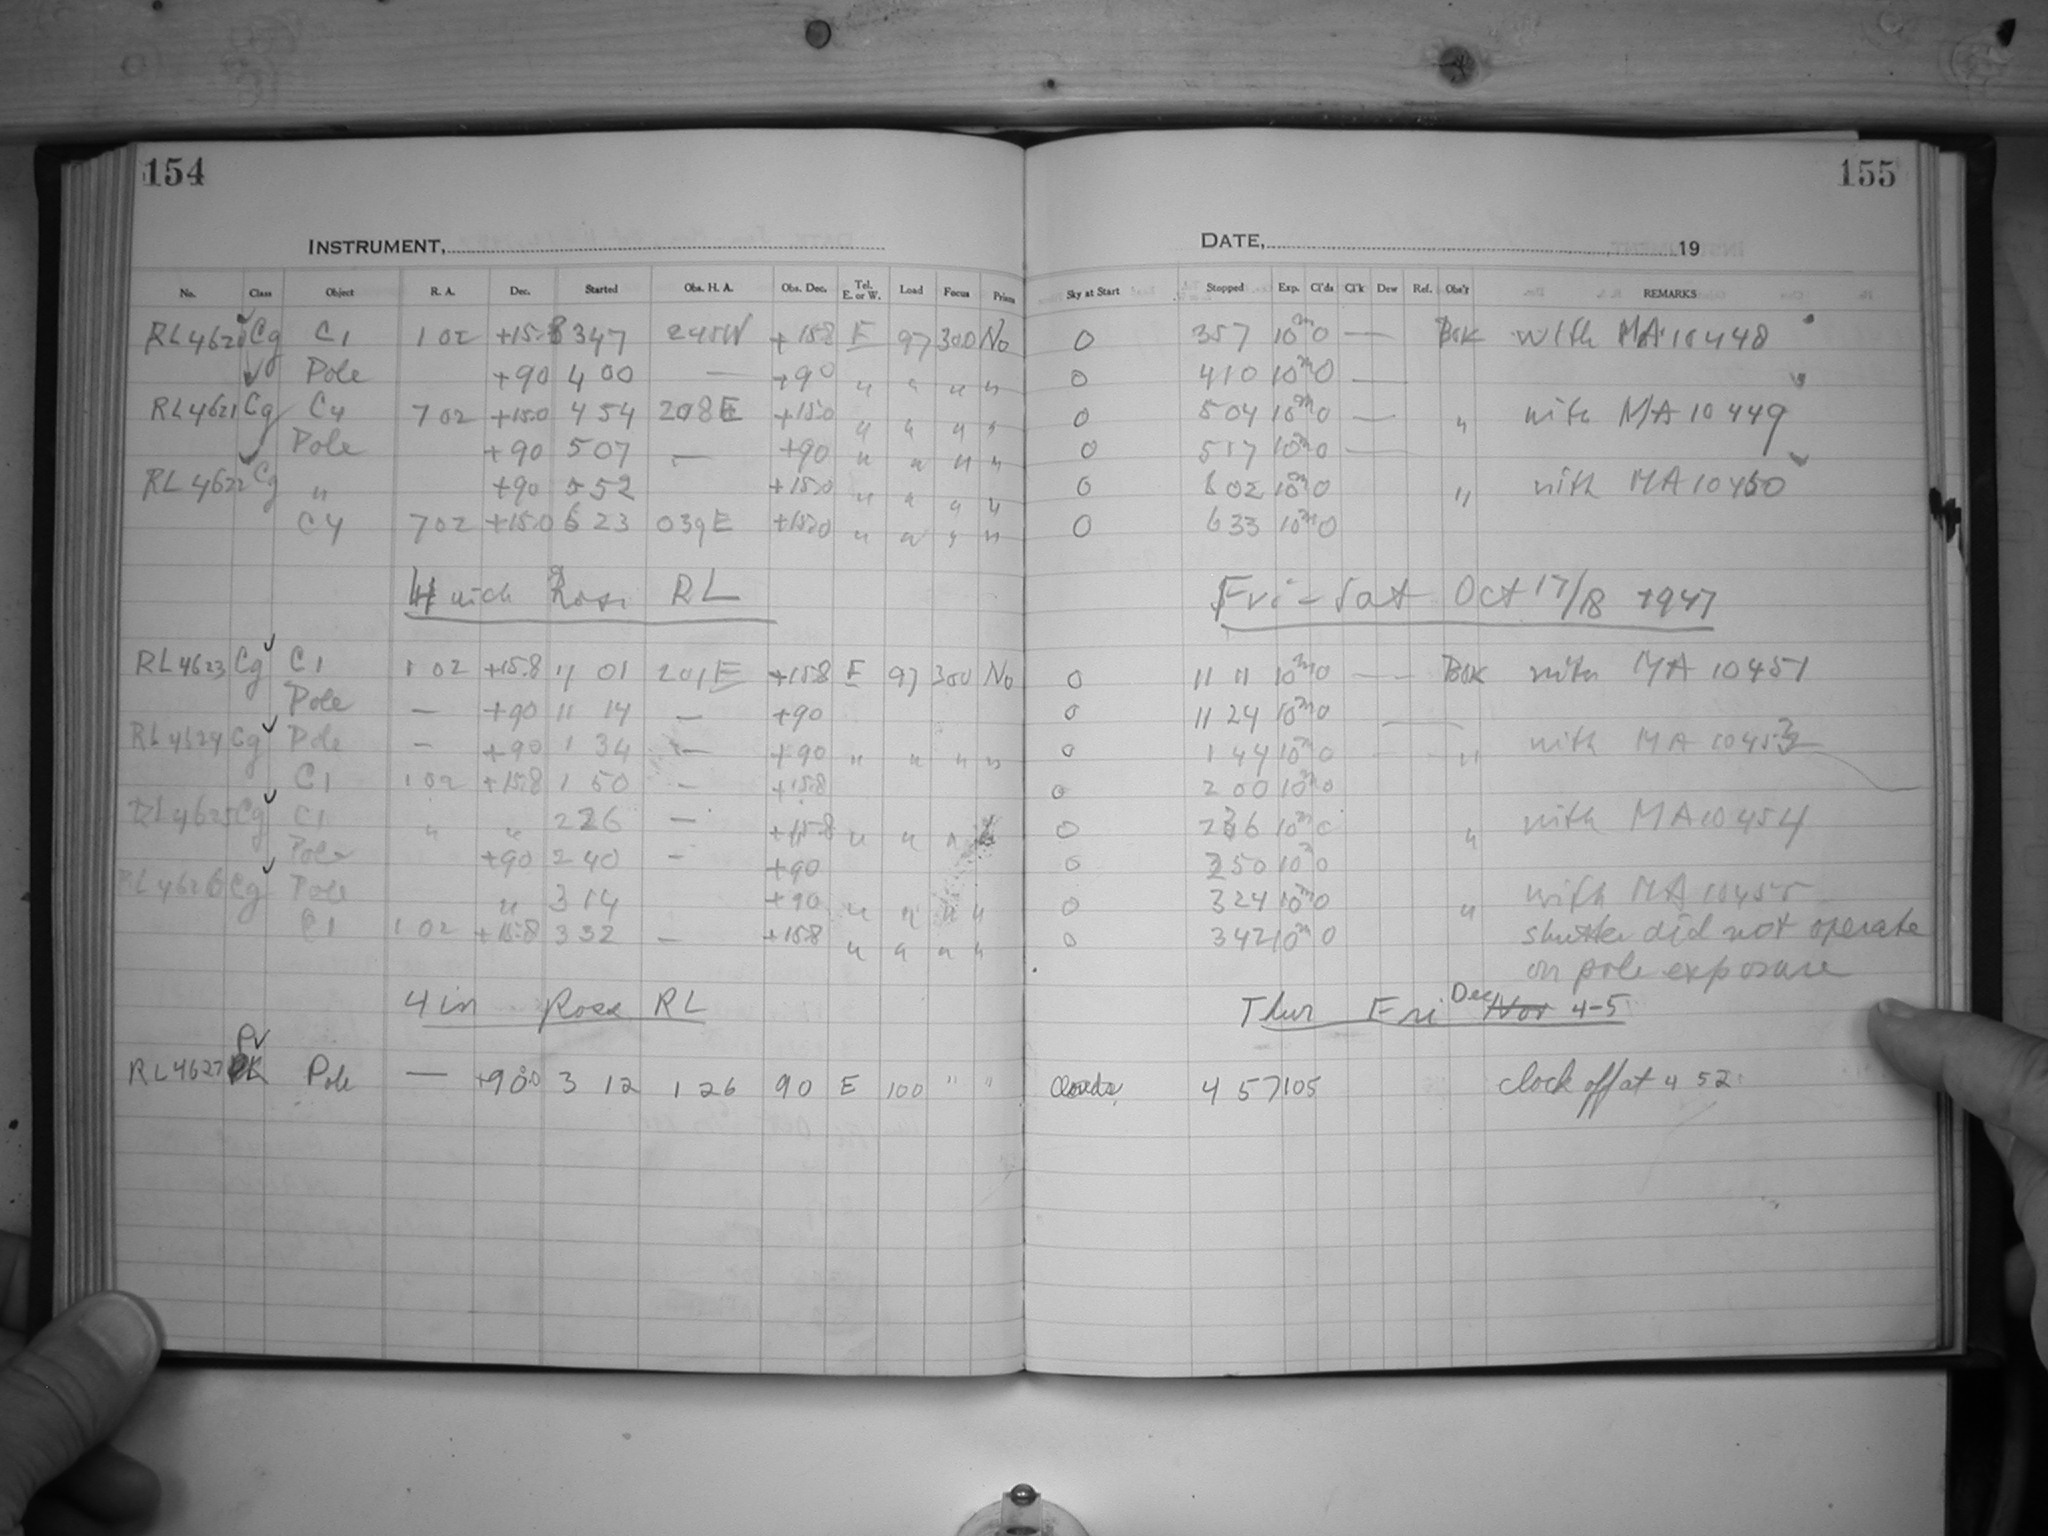 154 155
INSTRUMENT, DATE, 19
No. Class Object R. A. Dec. Started Obs. H. A. Obs. Dec. Tel. E. or W. Load Focus Prism Sky at Start Stopped Exp. Cl'ds Cl'k Dew Ref. Obs'r REMARKS
RL4620 Cg C1 1 02 +15.8 3 47 2 45W +15.8 E 97 300 No 0 3 57 10m 0 — BSK with MA 10448
Pole +90 4 00 — +90 " " " " 0 4 10 10m 0 —
RL4621 Cg C4 7 02 +15.0 4 54 2 08E +15.0 " " " " 0 5 04 10m 0 — " with MA 10449
Pole +90 5 07 — +90 " " " " 0 5 17 10m 0 —
RL4622 Cg " +90 5 52 +15.0 " " " " 0 6 02 10m 0 " with MA 10450
C4 7 02 +15.0 6 23 0 39E +15.0 " " " " 0 6 33 10m 0
4 inch Ross RL Fri - Sat Oct 17/18 1947
RL4623 Cg C1 1 02 +15.8 11 01 2 01E +15.8 E 97 300 No 0 11 11 10m 0 — BSK with MA 10451
Pole — +90 11 14 — +90 0 11 24 10m 0 —
RL4624 Cg Pole — +90 1 34 — +90 " " " " 0 1 44 10m 0 " with MA 10453
C1 1 02 +15.8 1 50 — +15.8 0 2 00 10m 0
RL4625 Cg C1 " " 2 26 — +15.8 " " " 0 2 36 10m 0 " with MA 10454
Pole +90 2 40 — +90 0 2 50 10m 0
RL4626 Cg Pole " 3 14 +90 " " " " 0 3 24 10m 0 " with MA 10455
C1 1 02 +15.8 3 32 — +15.8 " " " " 0 3 42 10m 0 shutter did not operate
on pole exposure
4 in Ross RL Thur Fri Dec Nov 4-5
Pv
RL4627 Pole — +90.0 3 12 1 26 90 E 100 " " Clouds 4 57 105 clock off at 4 52